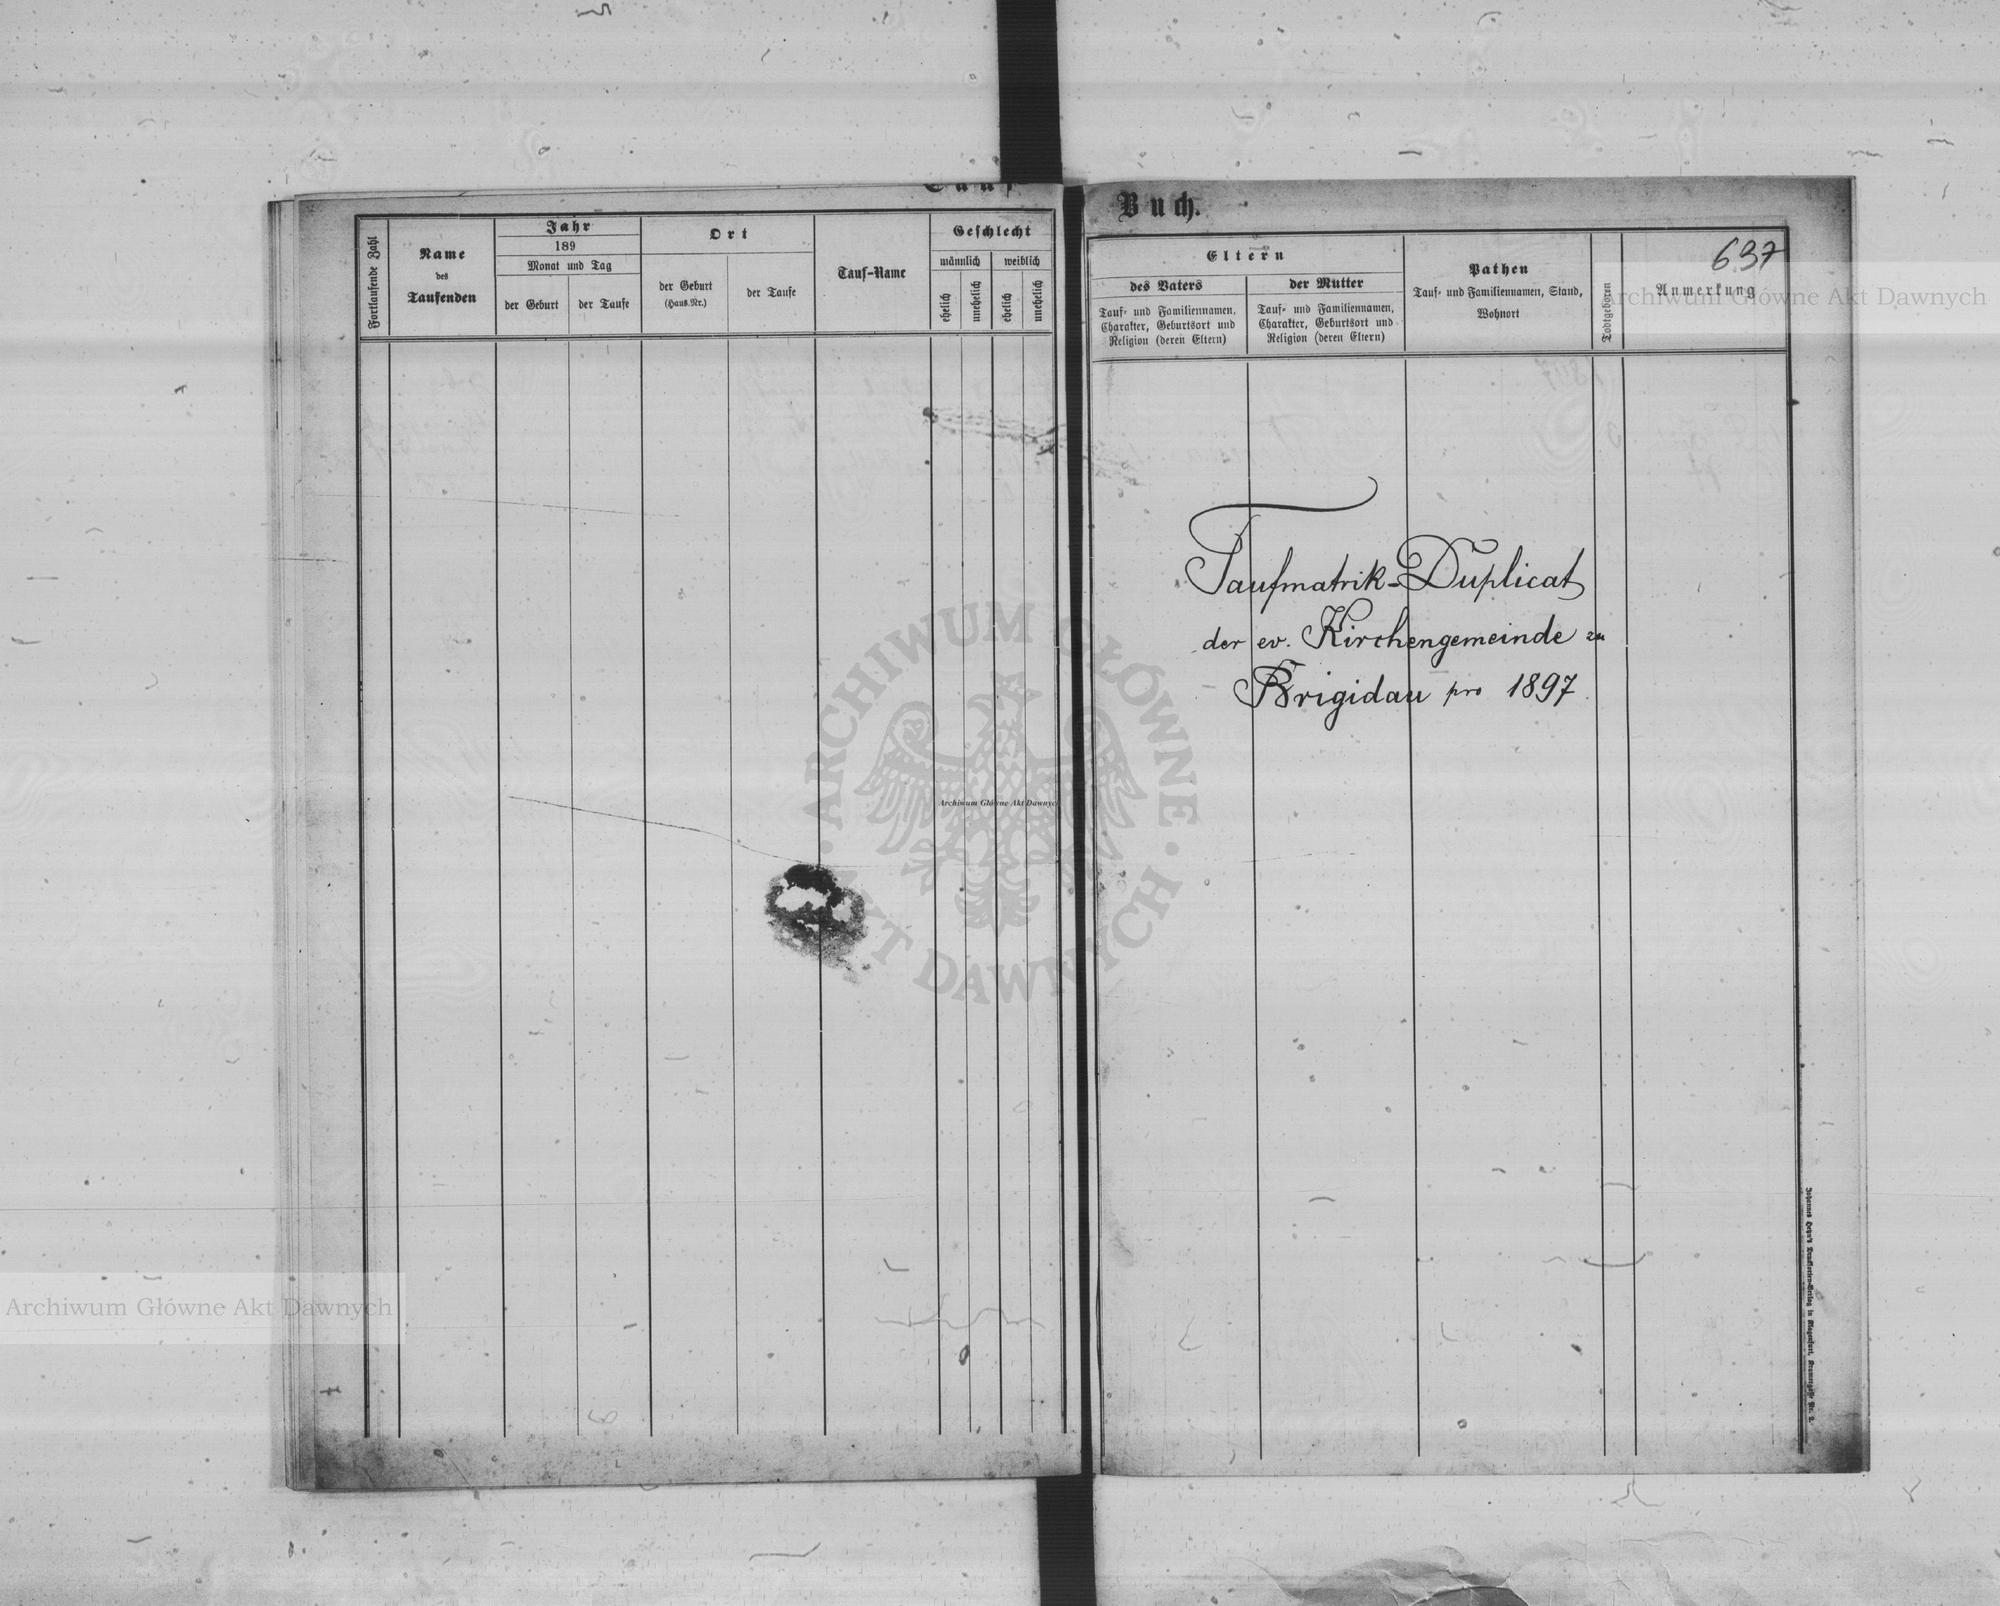 Tauf
Fortlaufende Zahl
Name
des
Taufenden
Jahr
189
Monat und Tag
der Geburt
der Taufe
Ort
der Geburt
(Haus-Nr.)
der Taufe
Tauf-Name
Geschlecht
männlich
weiblich
ehelich
unehelich
ehelich
unehelich
Buch.
637
Eltern
des Vaters
Tauf- und Familiennamen,
Charakter, Geburtsort und
Religion (deren Eltern)
der Mutter
Tauf- und Familiennamen,
Charakter, Geburtsort und
Religion (deren Eltern)
Pathen
Tauf- und Familiennamen, Stand,
Wohnort
Todtgeboren
Anmerkung
Archiwum Główne Akt Dawnych
Taufmatrik-Duplicat
der ev. Kirchengemeinde zu
Brigidau pro 1897
ARCHIWUM GŁÓWNE
AKT DAWNYCH
Archiwum Główne Akt Dawnych
Archiwum Główne Akt Dawnych
Verlag in Klagenfurt,